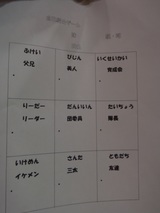 ふけい
父兄
びじん
美人
いくせいかい
育成会
りーだー
リーダー
だんいいん
団委員
たいちょう
隊長
いけめん
イケメン
さんた
三太
ともだち
友達